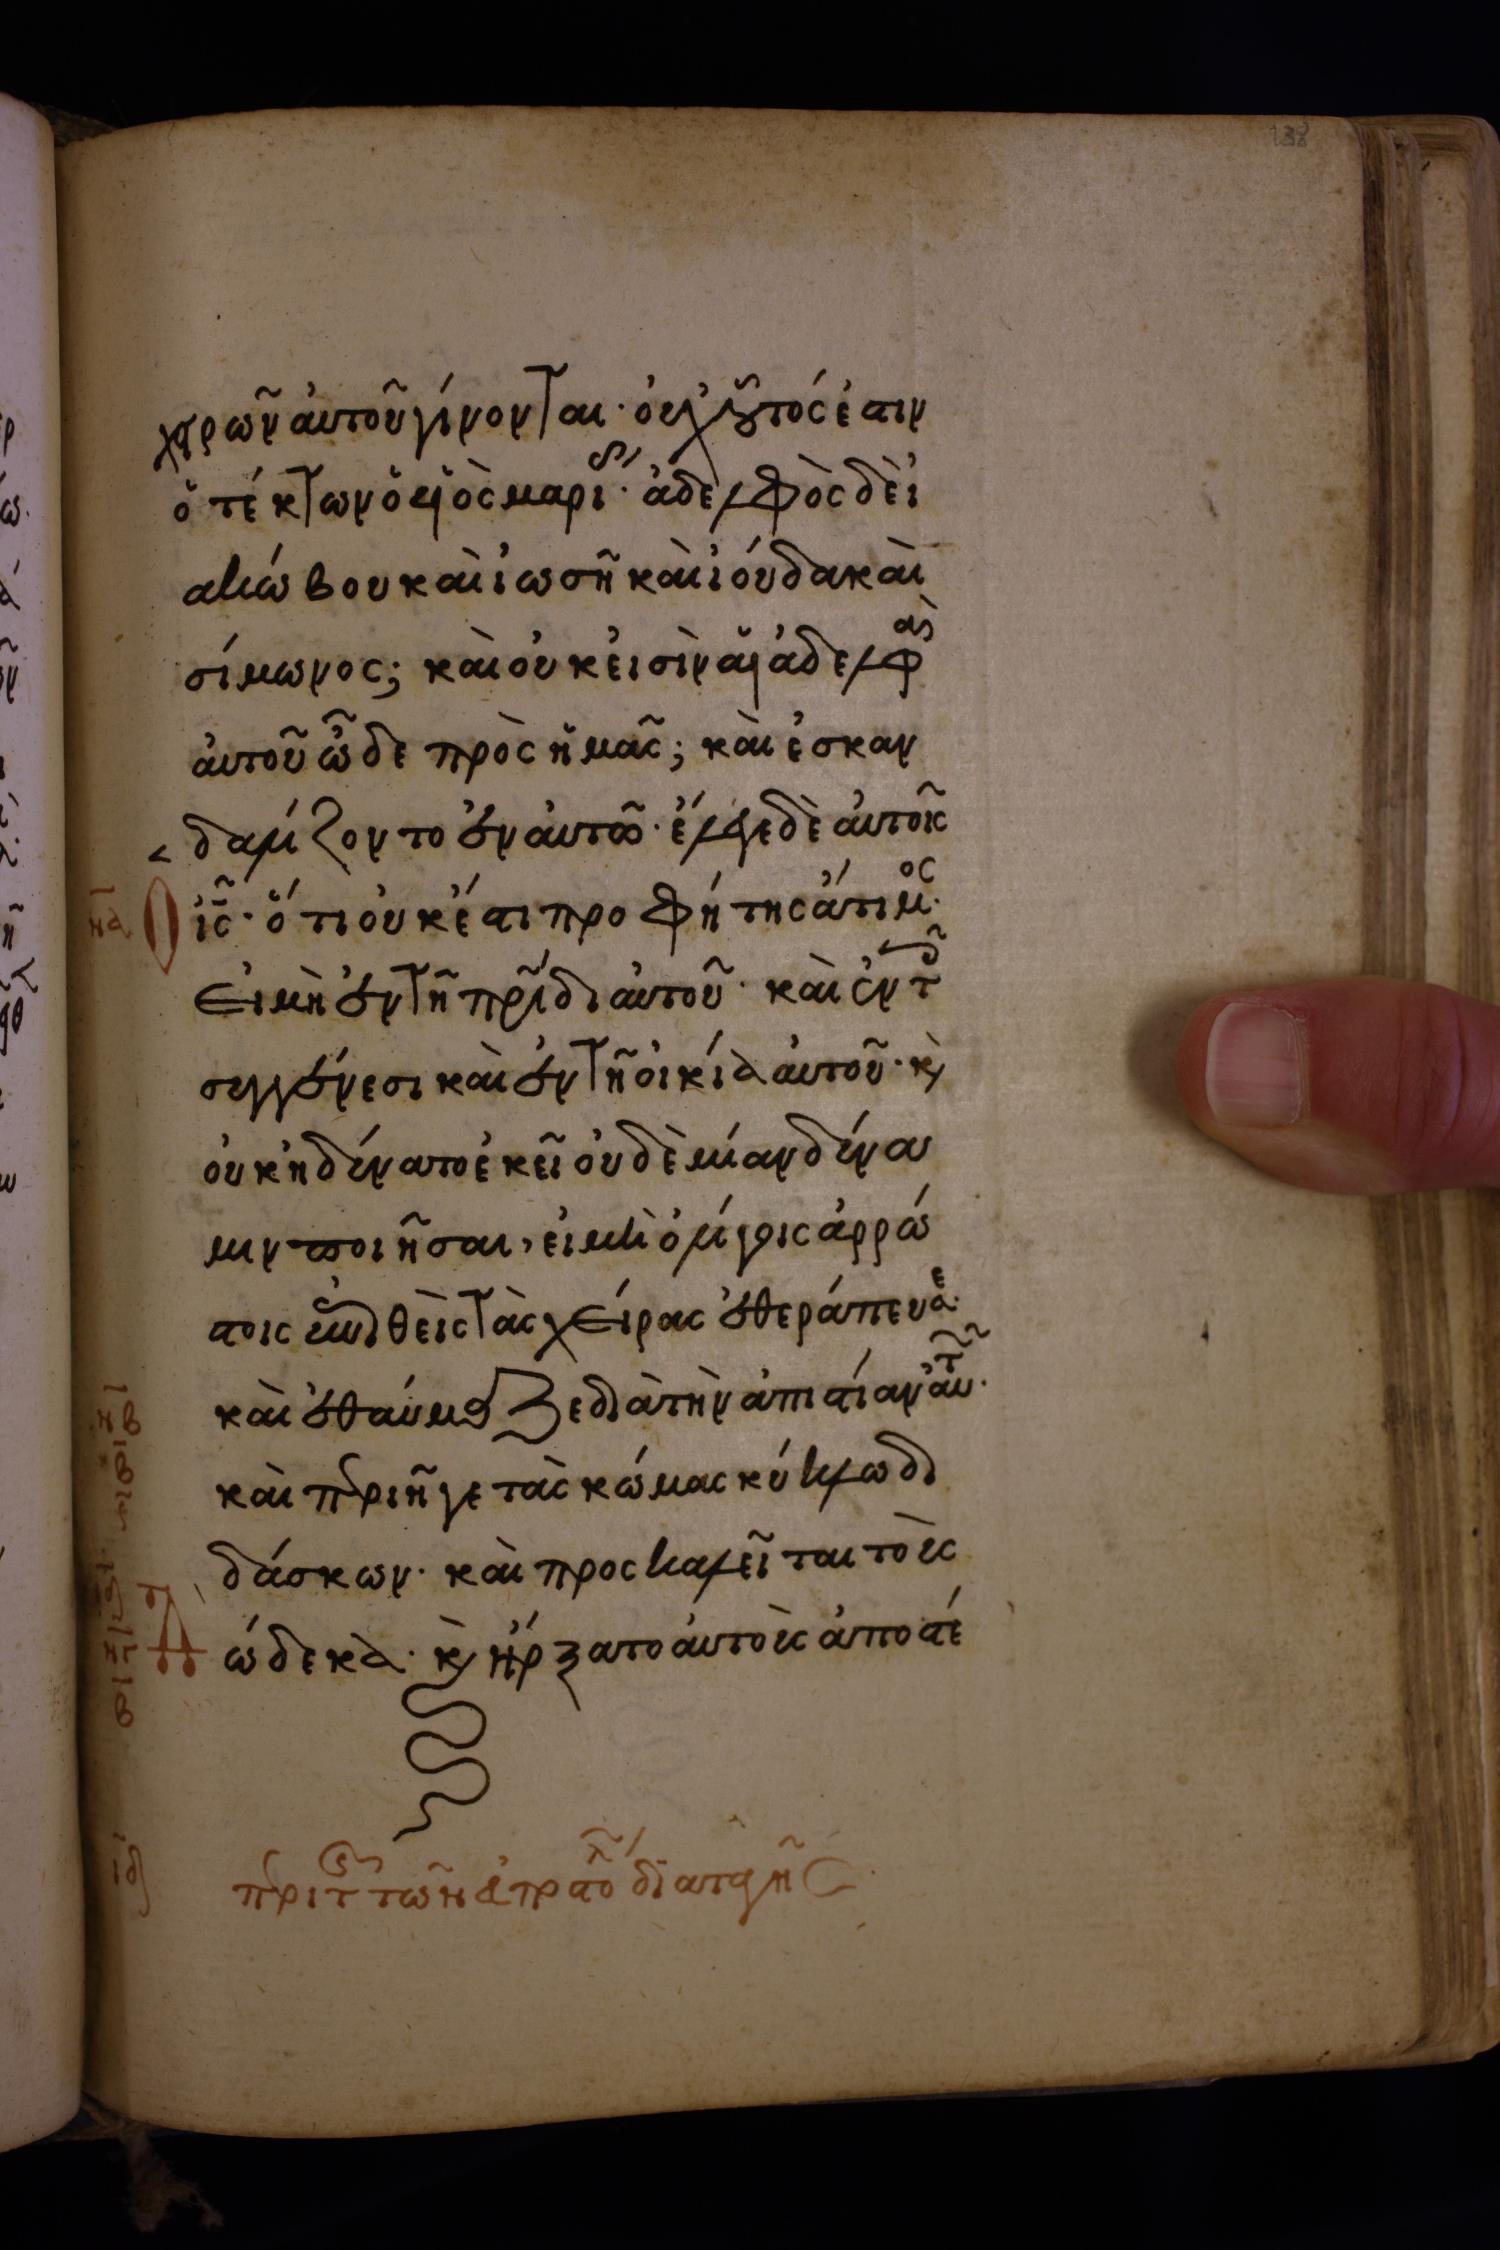 χειρῶν ἀυτοῦ γίνονται· ὀυχ' οὗτός ἐστιν
ὁ τέκτων ὁ υἱὸς μαρί· ἀδελφὸς δὲ ἰ
ακώβου καὶ ἰωσῆ καὶ ἰούδα καὶ
σίμωνος; καὶ ὀυκ ἐισὶν ἁι ἀδελφαὶ
ἀυτοῦ ὧδε πρὸς ἡμᾶς; καὶ ἐσκαν
δαλίζοντο ἐν ἀυτῶ· ἔλεγε δὲ ἀυτοῖς
ὁ ις· ὅτι ὀυκ έστι προφήτης ἄτιμος·
ει μὴ ἐν τῆ πρίδι ἀυτοῦ· καὶ ἐν τοῖς
συγγένεσι καὶ ἐν τῆ ὀικία ἀυτοῦ· κὶ
ὀυκ ἠδύνατο ἐκεῖ ὀυδεμίαν δύνα
μιν ποιῆσαι, ἐι μὴ ὀλίγοις ἀρρώ
στοις ἐπιθεὶς τὰς χείρας ἐθεράπευσε·
καὶ ἐθαύμαζε διὰ τὴν ἀπιστίαν ἀυτῶν·
καὶ περιῆγε τὰς κώμας κύκλω δι
δάσκων· καὶ προσκαλεῖται τοὺς
δώδεκα· κὶ ἤρξατο ἀυτοὺς ἀποστέ
να
νβ
ιδ
περὶ τῆς τῶν ἀποστόλων διαταγῆς